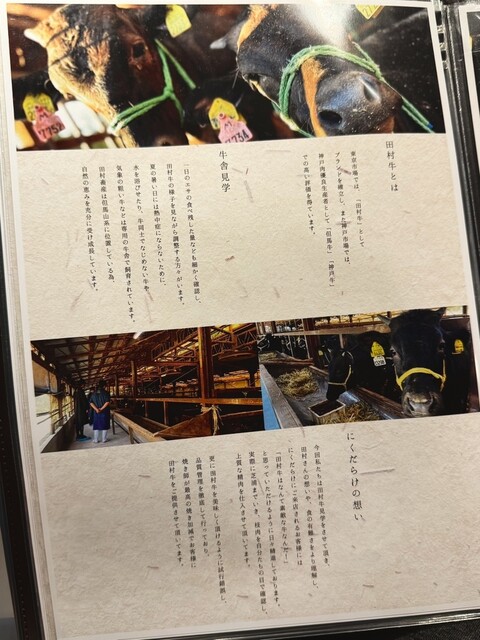 田村牛とは
東京市場では、「田村牛」として
ブランドを確立し、また神戸市場では、
神戸肉優良生産者として「但馬牛」「神戸牛」
での高い評価を得ています。
牛舎見学
一日のエサの食べ残した量なども細かく確認し、
田村牛の様子を見ながら調整する方々がいます。
夏の暑い日には熱中症にならないために、
水を浴びせたり、牛同士でなじめない牛や、
気象の粗い牛などは専用の牛舎で飼育されています。
田村畜産は但馬山系に位置している為、
自然の恵みを充分に受け成長しています。
にくだらけの想い
今回私たちは田村牛見学をさせて頂き、
田村さんの想いや、食の有難さをより理解し、
にくだらけにご来店されるお客様には
「田村牛はなんて素敵な牛なんだ！」
と思っていただけるように日々精進しております。
実際に芝浦まで行き、枝肉を自分たちの目で確認し、
上質な精肉を仕入させて頂いてます。
更に田村牛を美味しく頂けるように試行錯誤し、
品質管理を徹底して行っており、
焼き師が最高の焼き加減でお客様に
田村牛をご提供させて頂いてます。